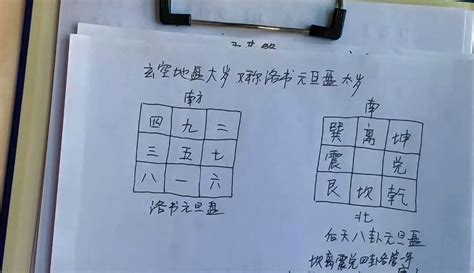 玄空地盘大岁又称洛书元旦盘太岁
南方
四 九 二
三 五 七
八 一 六
洛书元旦盘
南
巽 离 坤
震 兑
艮 坎 乾
北
后天八卦元旦盘
坎离震兑四卦各管